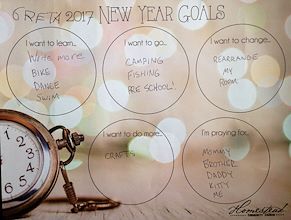 GRETA 2017 NEW YEAR GOALS
I want to learn...
Write more
BIKE
DANCE
SWIM
I want to go...
CAMPING
FISHING
PRE SCHOOL!
I want to change...
REARRANGE
MY
ROOM
I want to do more...
CRAFTS
I'm praying for...
MOMMY
BROTHER
DADDY
KITTY
ME
Homestead